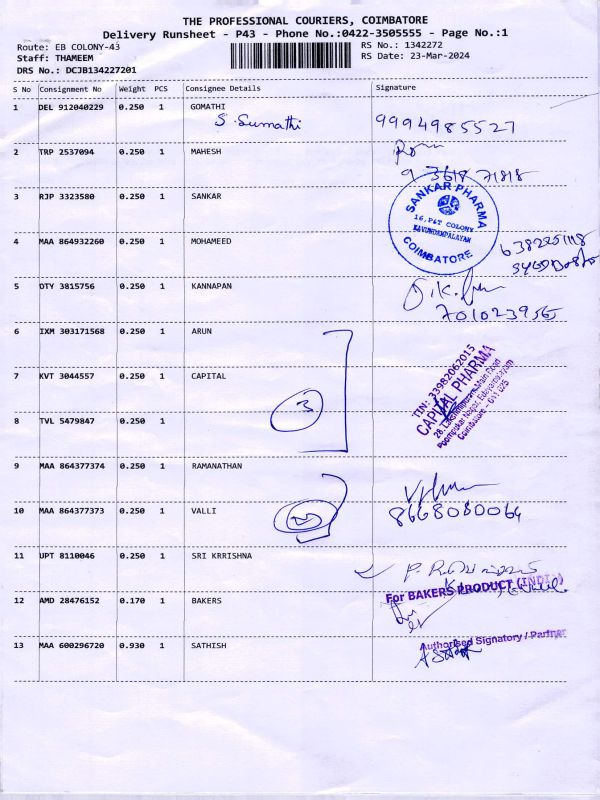 THE PROFESSIONAL COURIERS, COIMBATORE
Delivery Runsheet - P43 - Phone No.:0422-3505555 - Page No.:1
Route: EB COLONY-43 RS No.: 1342272
Staff: THAMEEM RS Date: 23-Mar-2024
DRS No.: DCJB134227201
S No Consignment No Weight PCS Consignee Details Signature
1 DEL 912040229 0.250 1 GOMATHI
S. Sumathi 9994985527
2 TRP 2537094 0.250 1 MAHESH
9 3618 71818
3 RJP 3323580 0.250 1 SANKAR
SANKAR PHARMA
16, P&T COLONY
KAVUNDAMPALAYAM
COIMBATORE
4 MAA 864932260 0.250 1 MOHAMEED
5 DTY 3815756 0.250 1 KANNAPAN
6 IXM 303171568 0.250 1 ARUN
7 KVT 3044557 0.250 1 CAPITAL
TIN: 33982062015
CAPITAL PHARMA
Coimbatore - 641 025
8 TVL 5479847 0.250 1
3
9 MAA 864377374 0.250 1 RAMANATHAN
10 MAA 864377373 0.250 1 VALLI
2
8668080064
11 UPT 8110046 0.250 1 SRI KRRISHNA
12 AMD 28476152 0.170 1 BAKERS
For BAKERS PRODUCT (INDIA)
Authorised Signatory / Partner
13 MAA 600296720 0.930 1 SATHISH